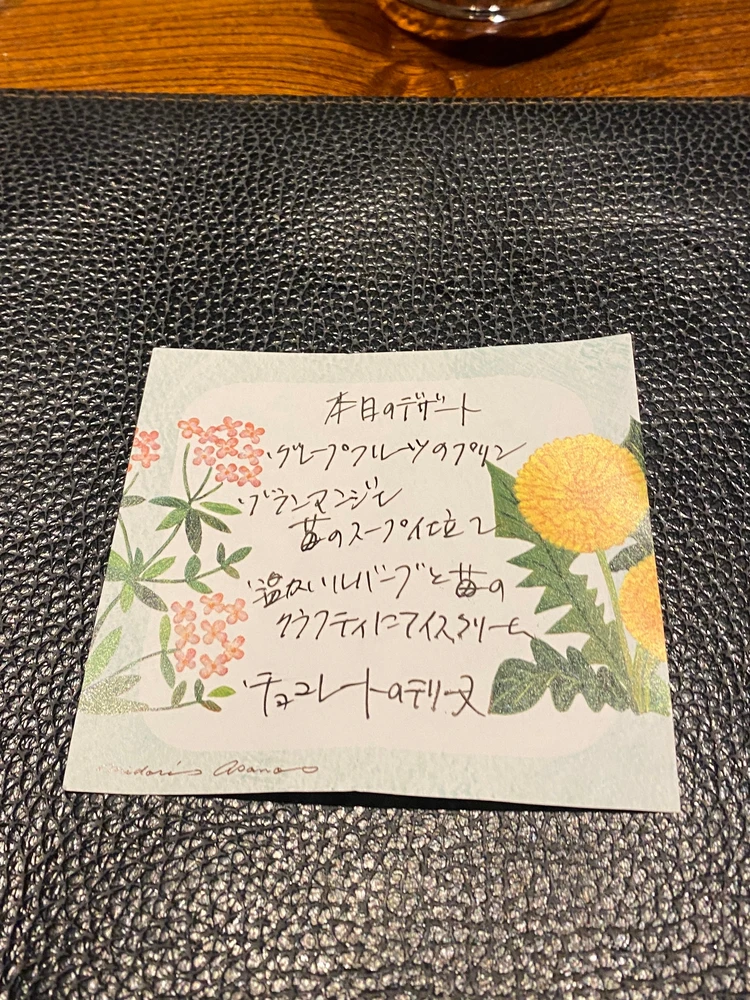 本日のデザート
・グレープフルーツのプリン
・ブランマンジェ
苺のスープ仕立て
・温かいルバーブと苺の
クラフティにアイスクリーム
・チョコレートのテリーヌ
Midori Asano